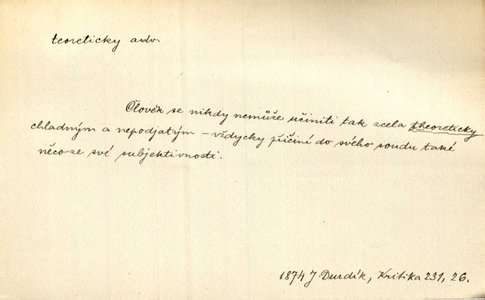 teoreticky adv.
Člověk se nikdy nemůže učiniti tak zcela theoreticky
chladným a nepodjatým – vždycky přičiní do svého soudu také
něco ze své subjektivnosti.
1874 J Durdík, Kritika 231, 26.